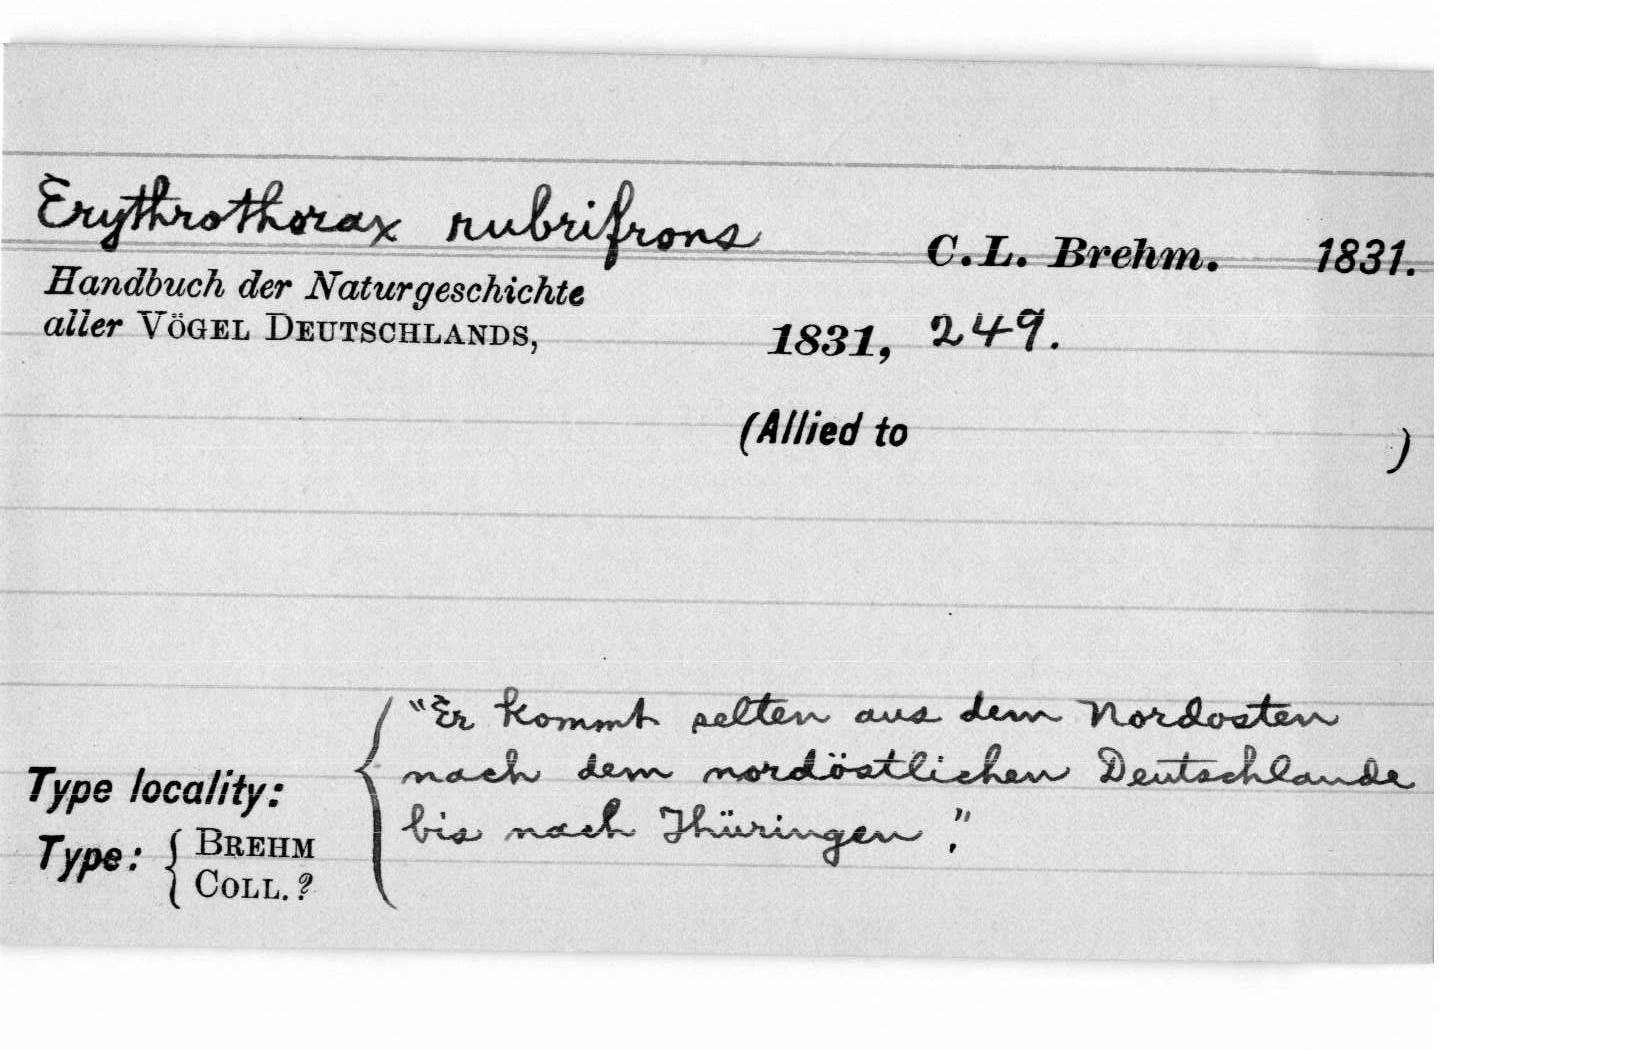 Erythrothorax rubrifrons C.L. Brehm. 1831.
Handbuch der Naturgeschichte
aller VÖGEL DEUTSCHLANDS, 1831, 249.
(Allied to )
"Er kommt selten aus dem Nordosten
nach dem nordöstlichen Deutschlande
Type locality:
bis nach Thüringen."
Type: { BREHM
COLL.?